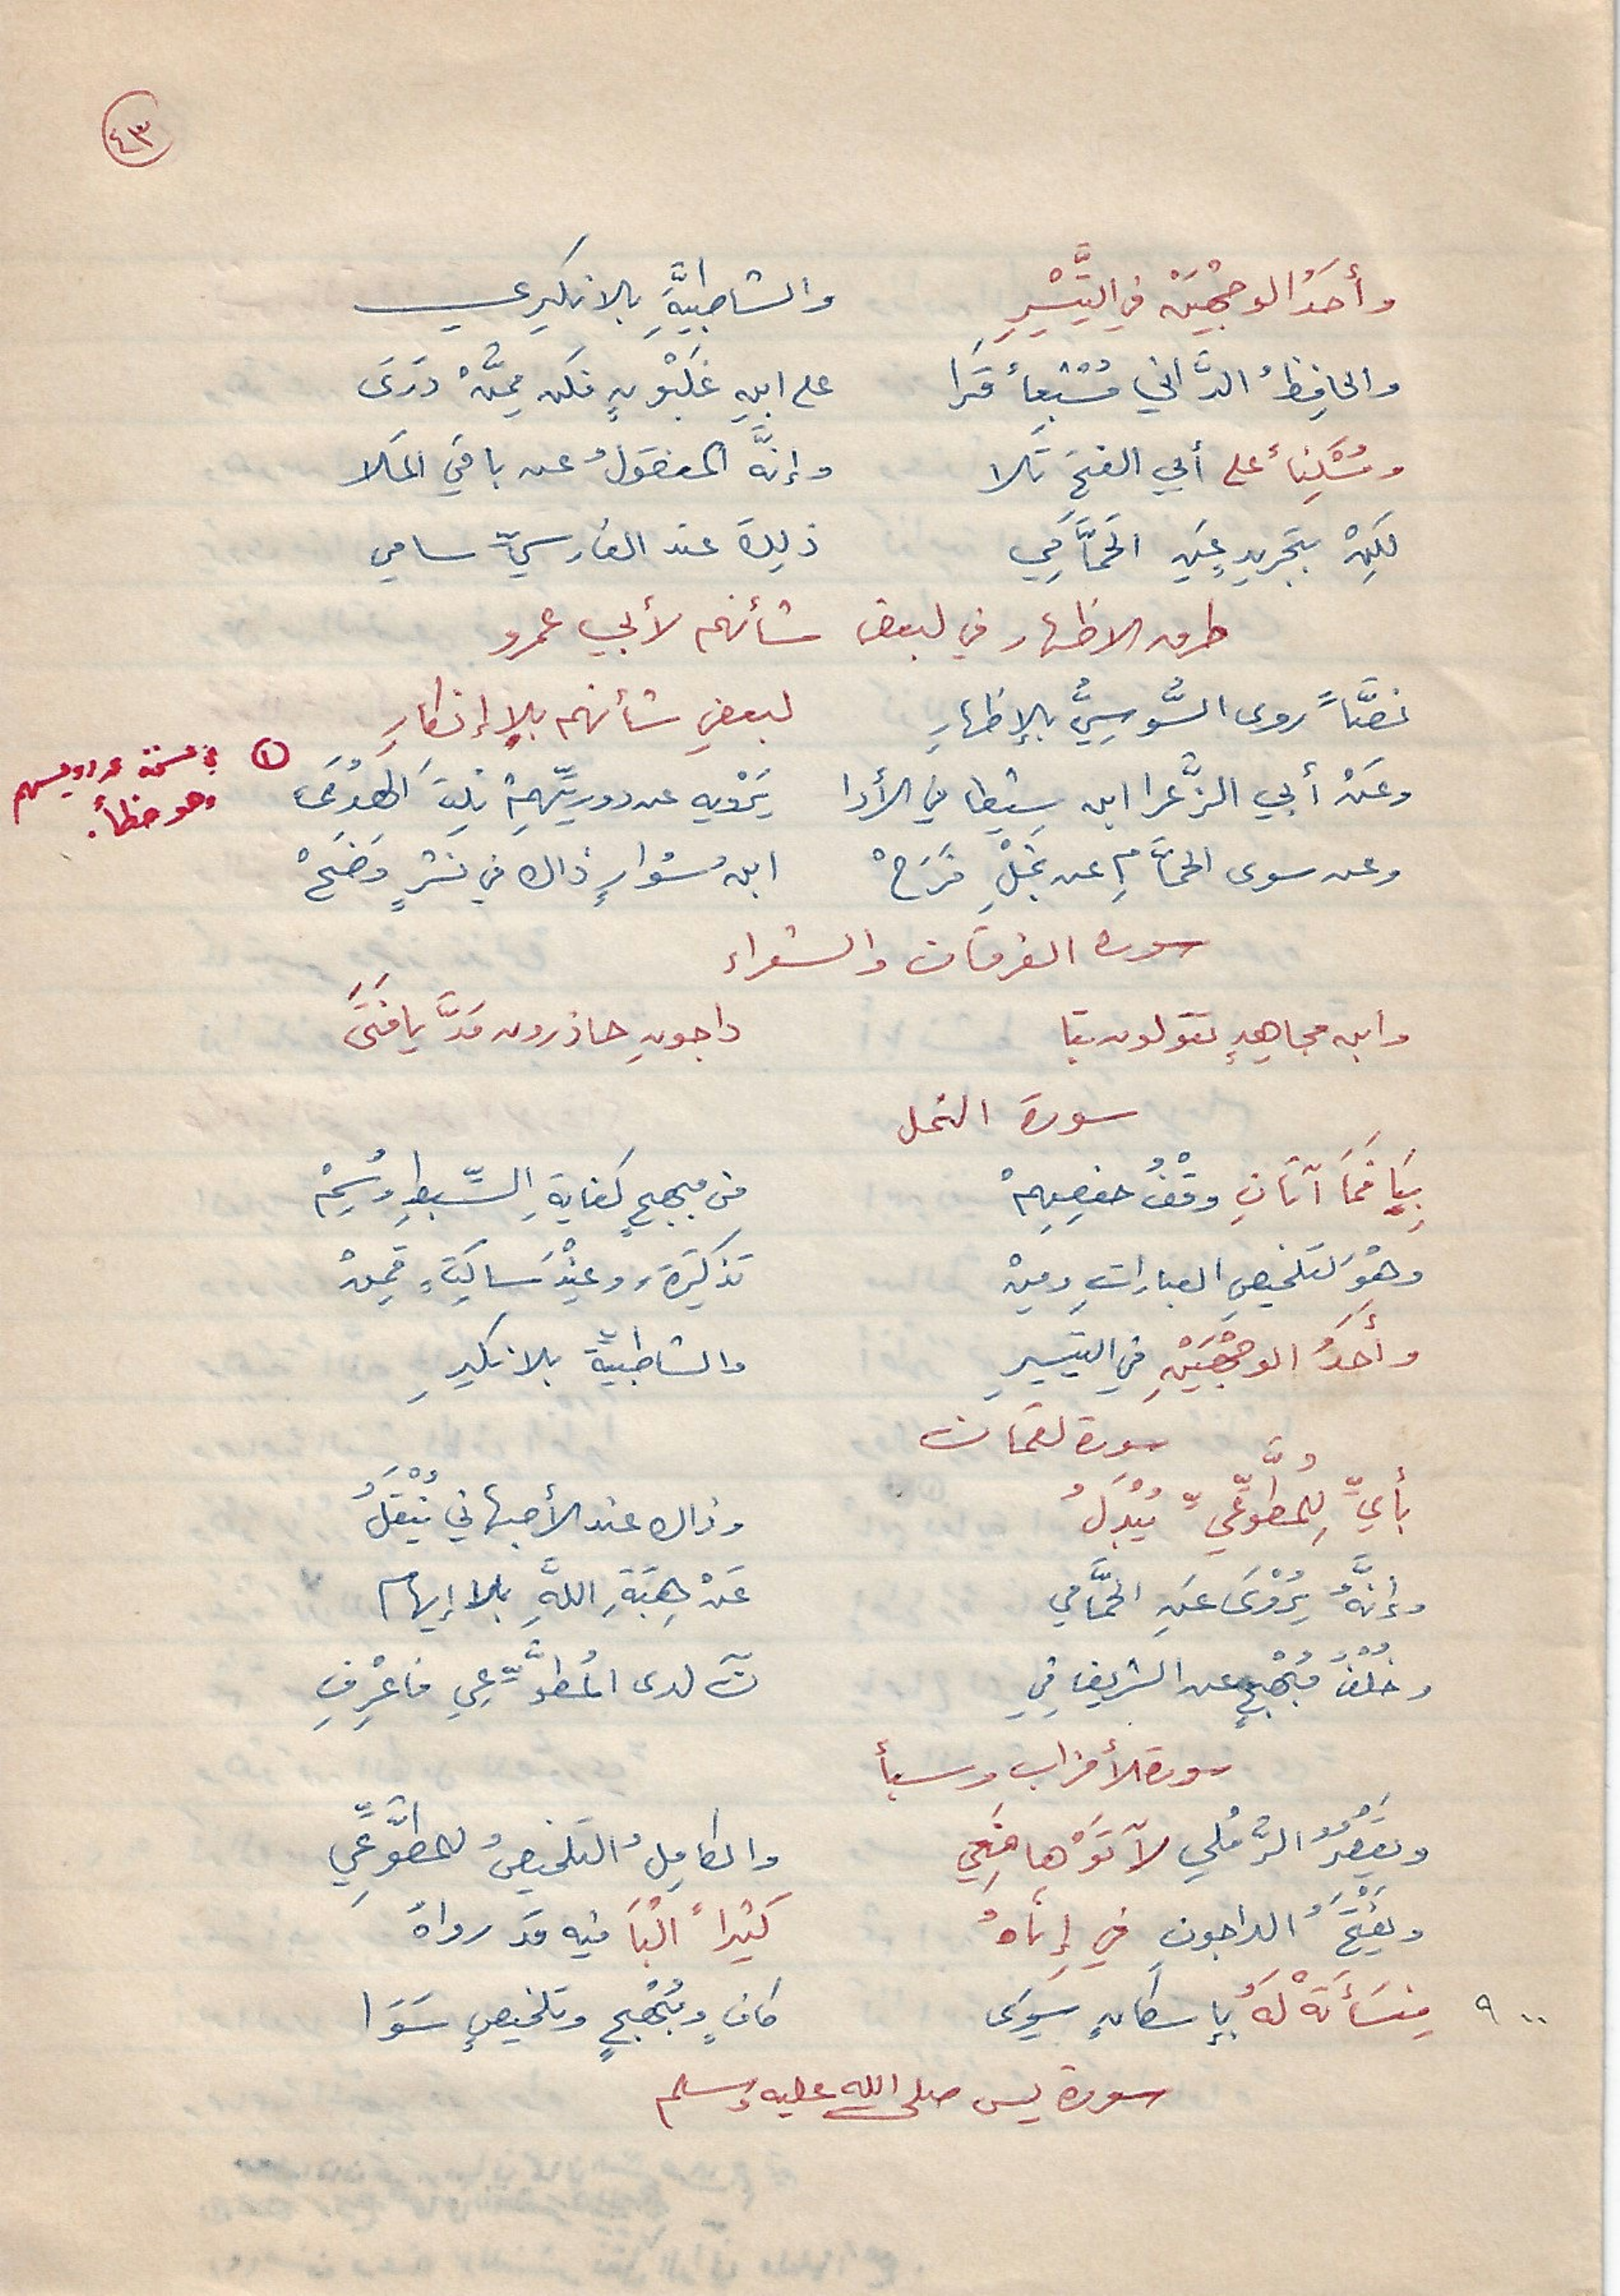 ٤٣
وأحَدُ الوجْهَيْنِ في التَّيْسِيرِ والشاطبيَّةِ بلا نكير عي
والحافِظُ الدَّاني مُشْبِعاً قَرَا على ابنِ غَلْبُونٍ فكن مِمَّنْ دَرَى
ومُسْكِناً على أبي الفتحِ تَلا وإنَّه المنقولُ عن باقي المَلا
لَكِنْ بتجريدٍ عنِ الحَمَّامِي ذلِكَ عند الفارسيِّ سامي
طرق الاظهار في لبعض شأنهم لأبي عمرو
نصَّاً روى السُّوسِيُّ بالإظهارِ لبعضِ شأنهم بلا إنكارِ
وعَنْ أبي الزَّعرا ابن شيطا في الأدا يَرْويه عن دوريِّهِمْ نِلْتَ الهُدَى ①
في نسخة عن دورسهم
وهو خطأ.
وعن سوى الحمَّامِ عن نجلِ فَرَحْ ابنُ سُوارٍ ذاك في نشرٍ وَضَحْ
سورة الفرقان والشعراء
وابن مجاهدٍ يقولون بتا داجونِ حاذرون مَدَّ يا فتَى
سورة النمل
بِيَا فَمَا آتانِ وقْفُ حفصِهِمْ من مبهجٍ كفايةِ السِّبطِ وُسِمْ
وهْوَ لتلخيصِ العباراتِ ومِنْ تذكِرَةٍ وعِنْدَ ساكِتٍ قَمِنْ
وأَحَدُ الوجْهَيْنِ في التيسيرِ والشاطبيةِ بلا نكيرِ
سورة لقمان
بأيِّ لِلمُطَّوِّعيِّ يُبْدَلُ وذاك عند الأصبهاني يُنْقَلُ
وإنَّهُ يُرْوَى عَنِ الحَمَّامي عَنْ هِبَةِ اللهِ بلا إيهام
وخُلْفُ مُبْهِجٍ عن الشريف في نَ لدى المُطَّوِّعِي فاعْرِفِ
سورة الأحزاب وسبأ
ويَقْصُرُ الرَّمْلي لآتَوْها فَعِي والكامِلُ التلخيصُ للمطَّوِّعِي
ويَفْتَحُ الداجونِ في إِنَاهُ كَبيراً الْبَا فيه قد رواهُ
٩٠٠ مِنسَأَتَهْ لَهُ بإسكانٍ سِوَى كافٍ ومُبْهِجٍ وتلخيصٍ سَوَا
سورة يس صلى الله عليه وسلم